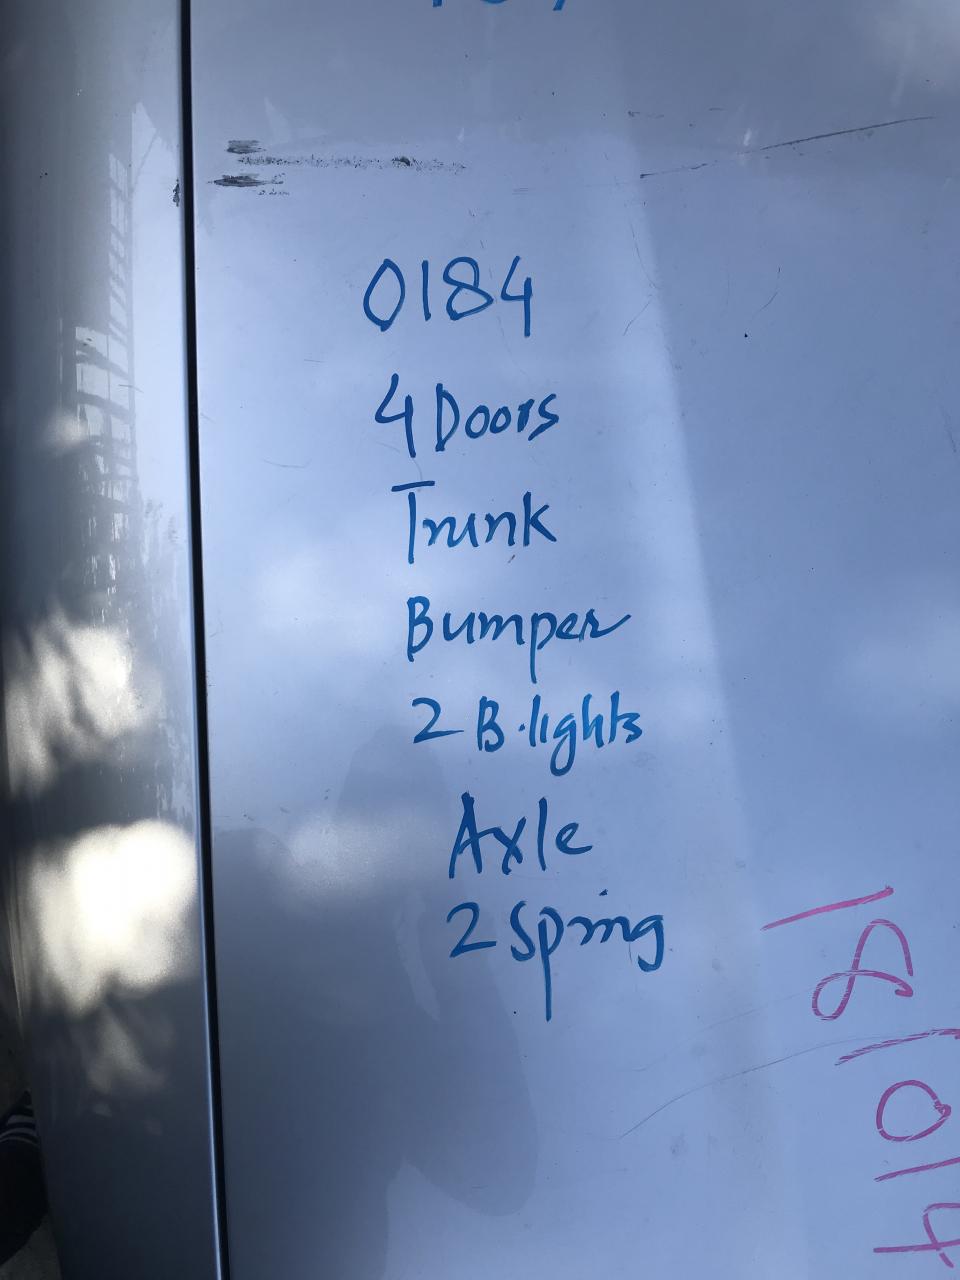 0184
4 Doors
Trunk
Bumper
2 B.lights
Axle
2 Spring